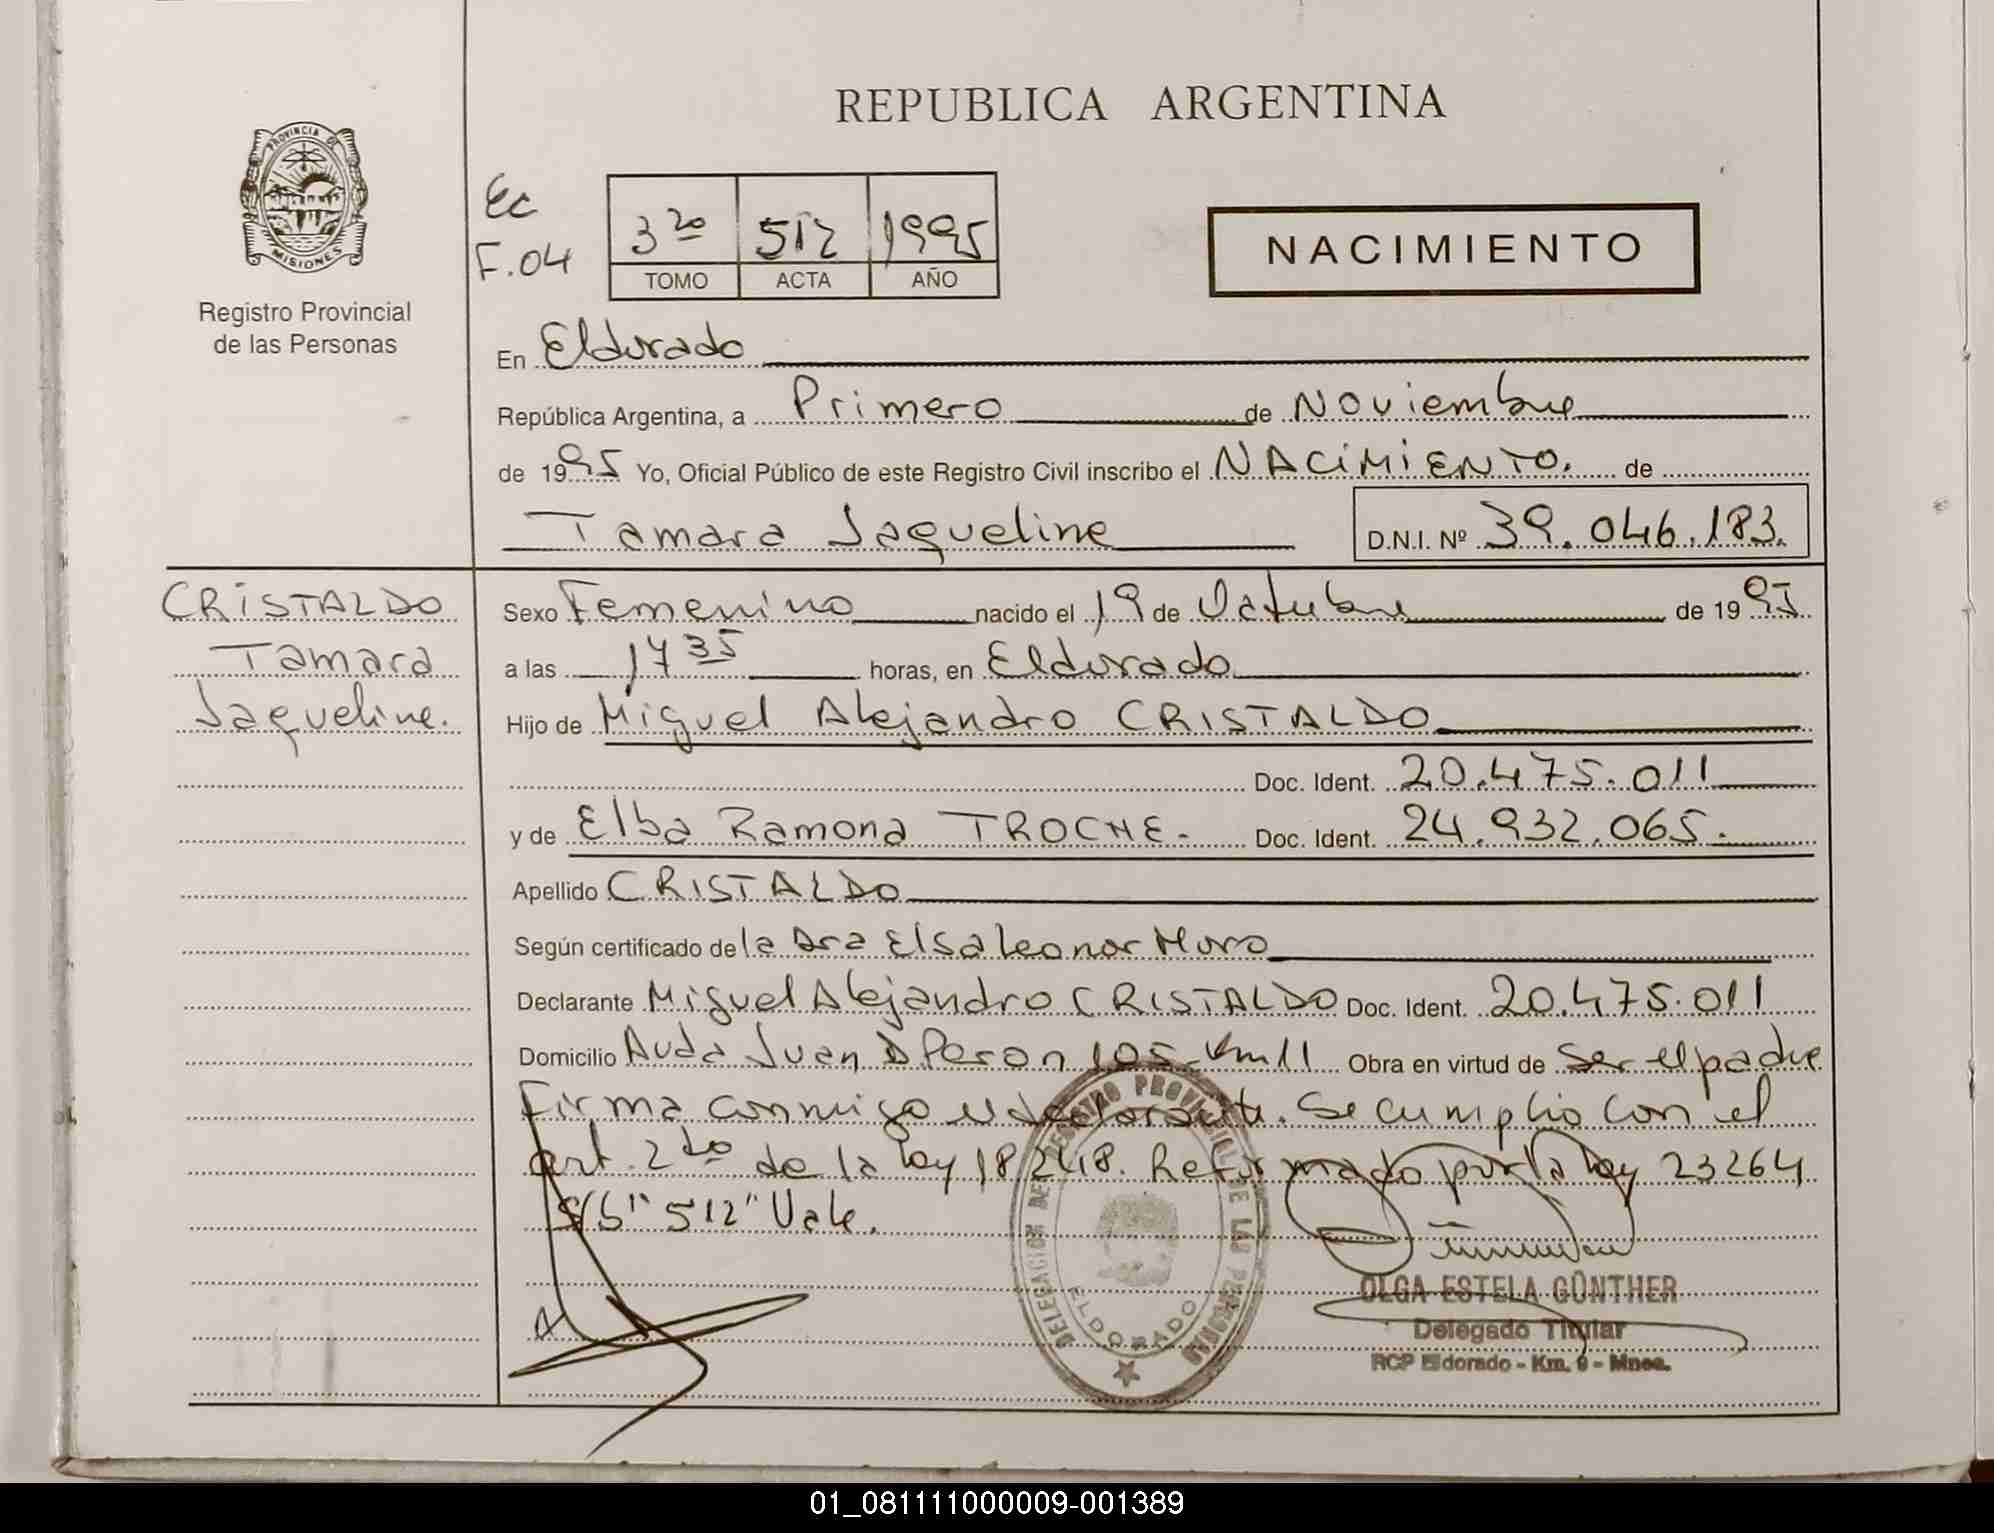 REPUBLICA ARGENTINA
PROVINCIA DE
MISIONES
Registro Provincial
de las Personas
Ec
F.04
3ro 512 1995
TOMO ACTA AÑO
NACIMIENTO
En Eldorado
República Argentina, a Primero de Noviembre
de 1995 Yo, Oficial Público de este Registro Civil inscribo el NACIMIENTO. de
Tamara Jaqueline D.N.I. Nº 39.046.183.
CRISTALDO
Tamara
Jaqueline.
Sexo Femenino nacido el 19 de Octubre de 1995
a las 17 35 horas, en Eldorado
Hijo de Miguel Alejandro CRISTALDO
Doc. Ident. 20.475.011
y de Elba Ramona TROCHE. Doc. Ident. 24.932.065.
Apellido CRISTALDO
Según certificado de la Dra Elsa Leonor Muro
Declarante Miguel Alejandro CRISTALDO Doc. Ident. 20.475.011
Domicilio Avda Juan D Peron 105 Km 11 Obra en virtud de ser el padre
Firma conmigo el declarante. Se cumplio con el
art. 2do de la ley 18248. Reformado por la ley 23264
S/b "512" Vale.
DELEGACION DEL REGISTRO PROVINCIAL DE LAS PERSONAS
ELDORADO
OLGA ESTELA GÜNTHER
Delegado Titular
RCP Eldorado - Km. 9 - Mnes.
01_081111000009-001389